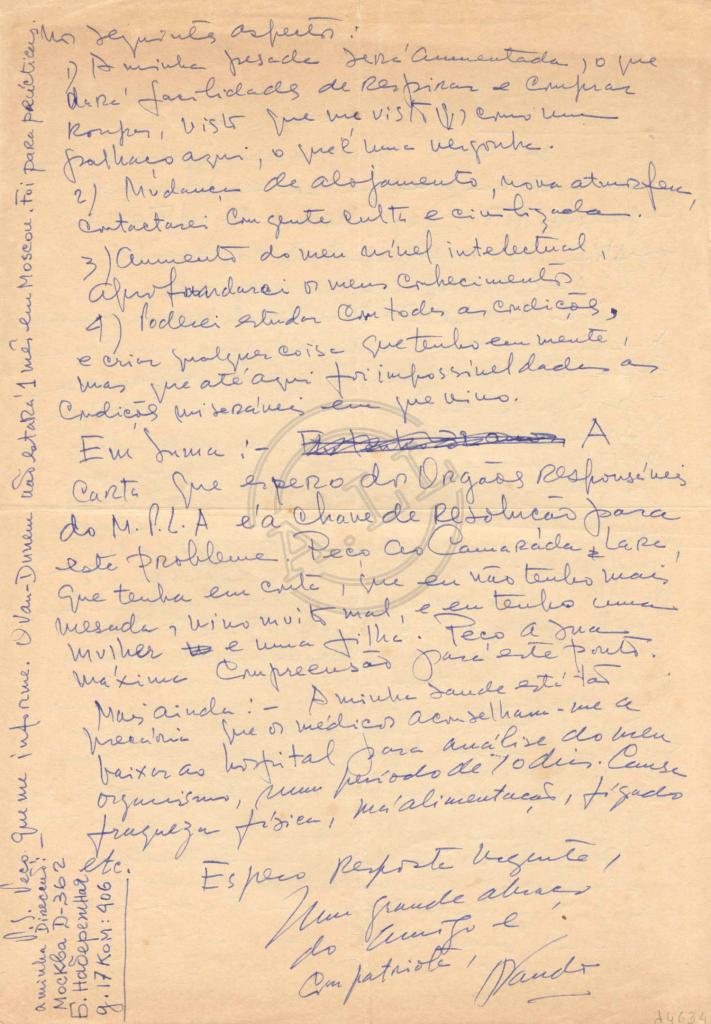 nos seguintes aspectos:
1) A minha mesada será aumentada, o que
dará facilidades de respirar e comprar
roupas, visto que me visto como um
palhaço aqui, o que é uma vergonha.
2) Mudança de alojamento, nova atmosfera,
contactarei com gente culta e civilizada.
3) Aumento do meu nível intelectual,
aprofundarei os meus conhecimentos
4) Poderei estudar com todas as condições,
e criar qualquer coisa que tenho em mente,
mas que até aqui foi impossível dadas as
condições miseráveis em que vivo.
Em suma:- A
carta que espero dos Orgãos responsáveis
do M.P.L.A é a chave de resolução para
este problema. Peço ao Camarada Lara,
que tenha em conta, que eu não tenho mais
mesada, vivo muito mal, e eu tenho uma
mulher e uma filha. Peço a sua
máxima compreensão para este ponto.
Mais ainda:- A minha saude está tão
precária que os médicos aconselham-me a
baixar ao hospital para análise do meu
organismo, num período de 10 dias. Causa
fraqueza física, má alimentação, fígado
etc.
Espero resposta urgente,
Um grande abraço
do amigo e
compatriota,
Vando
P.S. Peço que me informe. O Van-Dunem não estará 1 mês em Moscou. Foi para prácticas.
a minha Direcção:-
Москва Д-362
Б. Набережная
д. 17 Ком: 406
A.T.L
A4634